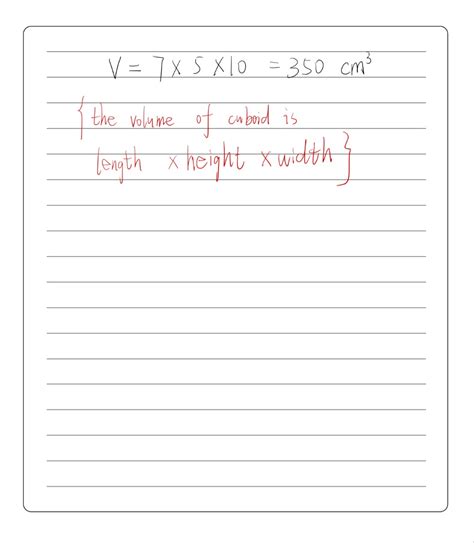 V = 7 × 5 × 10 = 350 cm³
{ the volume of cuboid is
length × height × width }